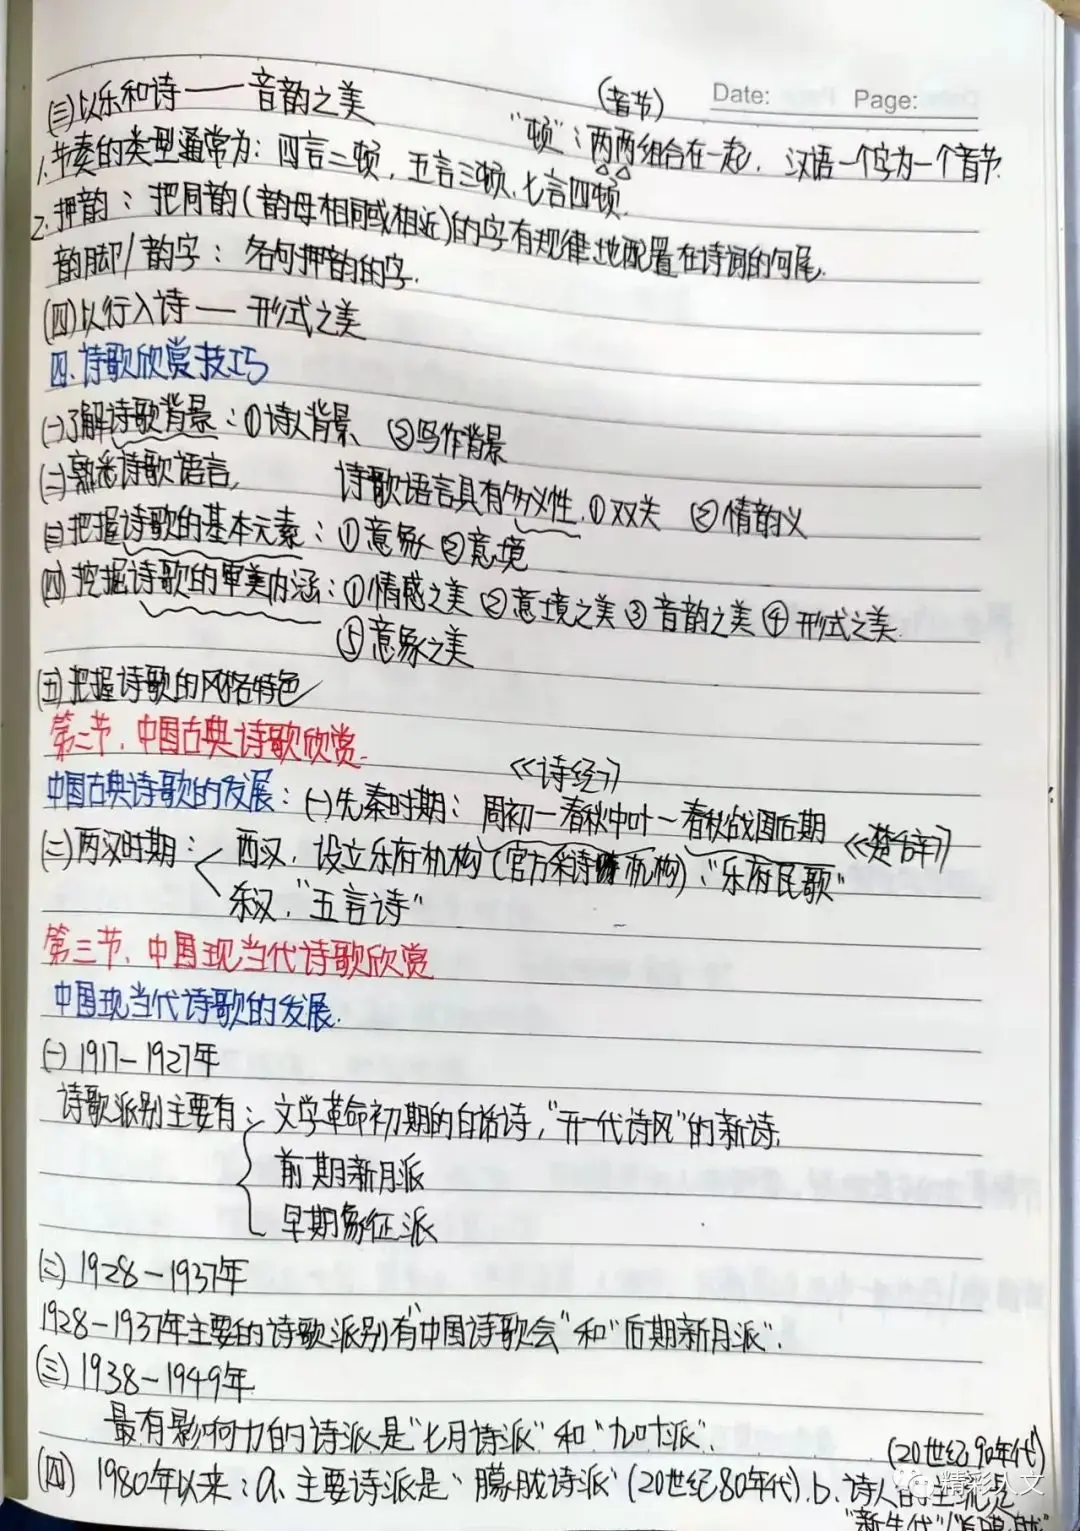 Date: Page:
(三)以乐和诗——音韵之美
(音节)
"顿":两两组合在一起. 汉语一个字为一个音节.
1.节奏的类型通常为:四言二顿,五言三顿、七言四顿.
2.押韵:把同韵(韵母相同或相近)的字有规律地配置在诗词的句尾.
韵脚/韵字:各句押韵的字.
(四)以行入诗——形式之美
四.诗歌欣赏技巧
(一)了解诗歌背景:①诗人背景 ②写作背景
(二)熟悉诗歌语言, 诗歌语言具有多义性.①双关 ②情韵义
(三)把握诗歌的基本元素:①意象 ②意境
(四)挖掘诗歌的审美内涵:①情感之美②意境之美③音韵之美④形式之美.
⑤意象之美
(五)把握诗歌的风格特色
第二节、中国古典诗歌欣赏.
《诗经》
中国古典诗歌的发展:(一)先秦时期:周初—春秋中叶~春秋战国后期《楚辞》
(二)两汉时期: 西汉,设立乐府机构(官方采诗机构)、"乐府民歌"
东汉,"五言诗"
第三节、中国现当代诗歌欣赏
中国现当代诗歌的发展.
(一)1917—1927年
诗歌派别主要有:文学革命初期的白话诗,"开一代诗风"的新诗.
前期新月派
早期象征派
(二)1928—1937年
1928—1937年主要的诗歌派别有"中国诗歌会"和"后期新月派".
(三)1938—1949年.
最有影响力的诗派是"七月诗派"和"九叶派".
(20世纪90年代)
(四) 1980年以来:a、主要诗派是"朦胧诗派"(20世纪80年代).b、诗人的主流是
精彩人文
"新生代"/"后朦胧"